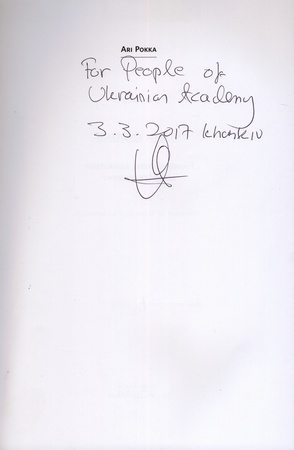 ARI POKKA
For People of
Ukrainian Academy
3.3.2017 Kharkiv